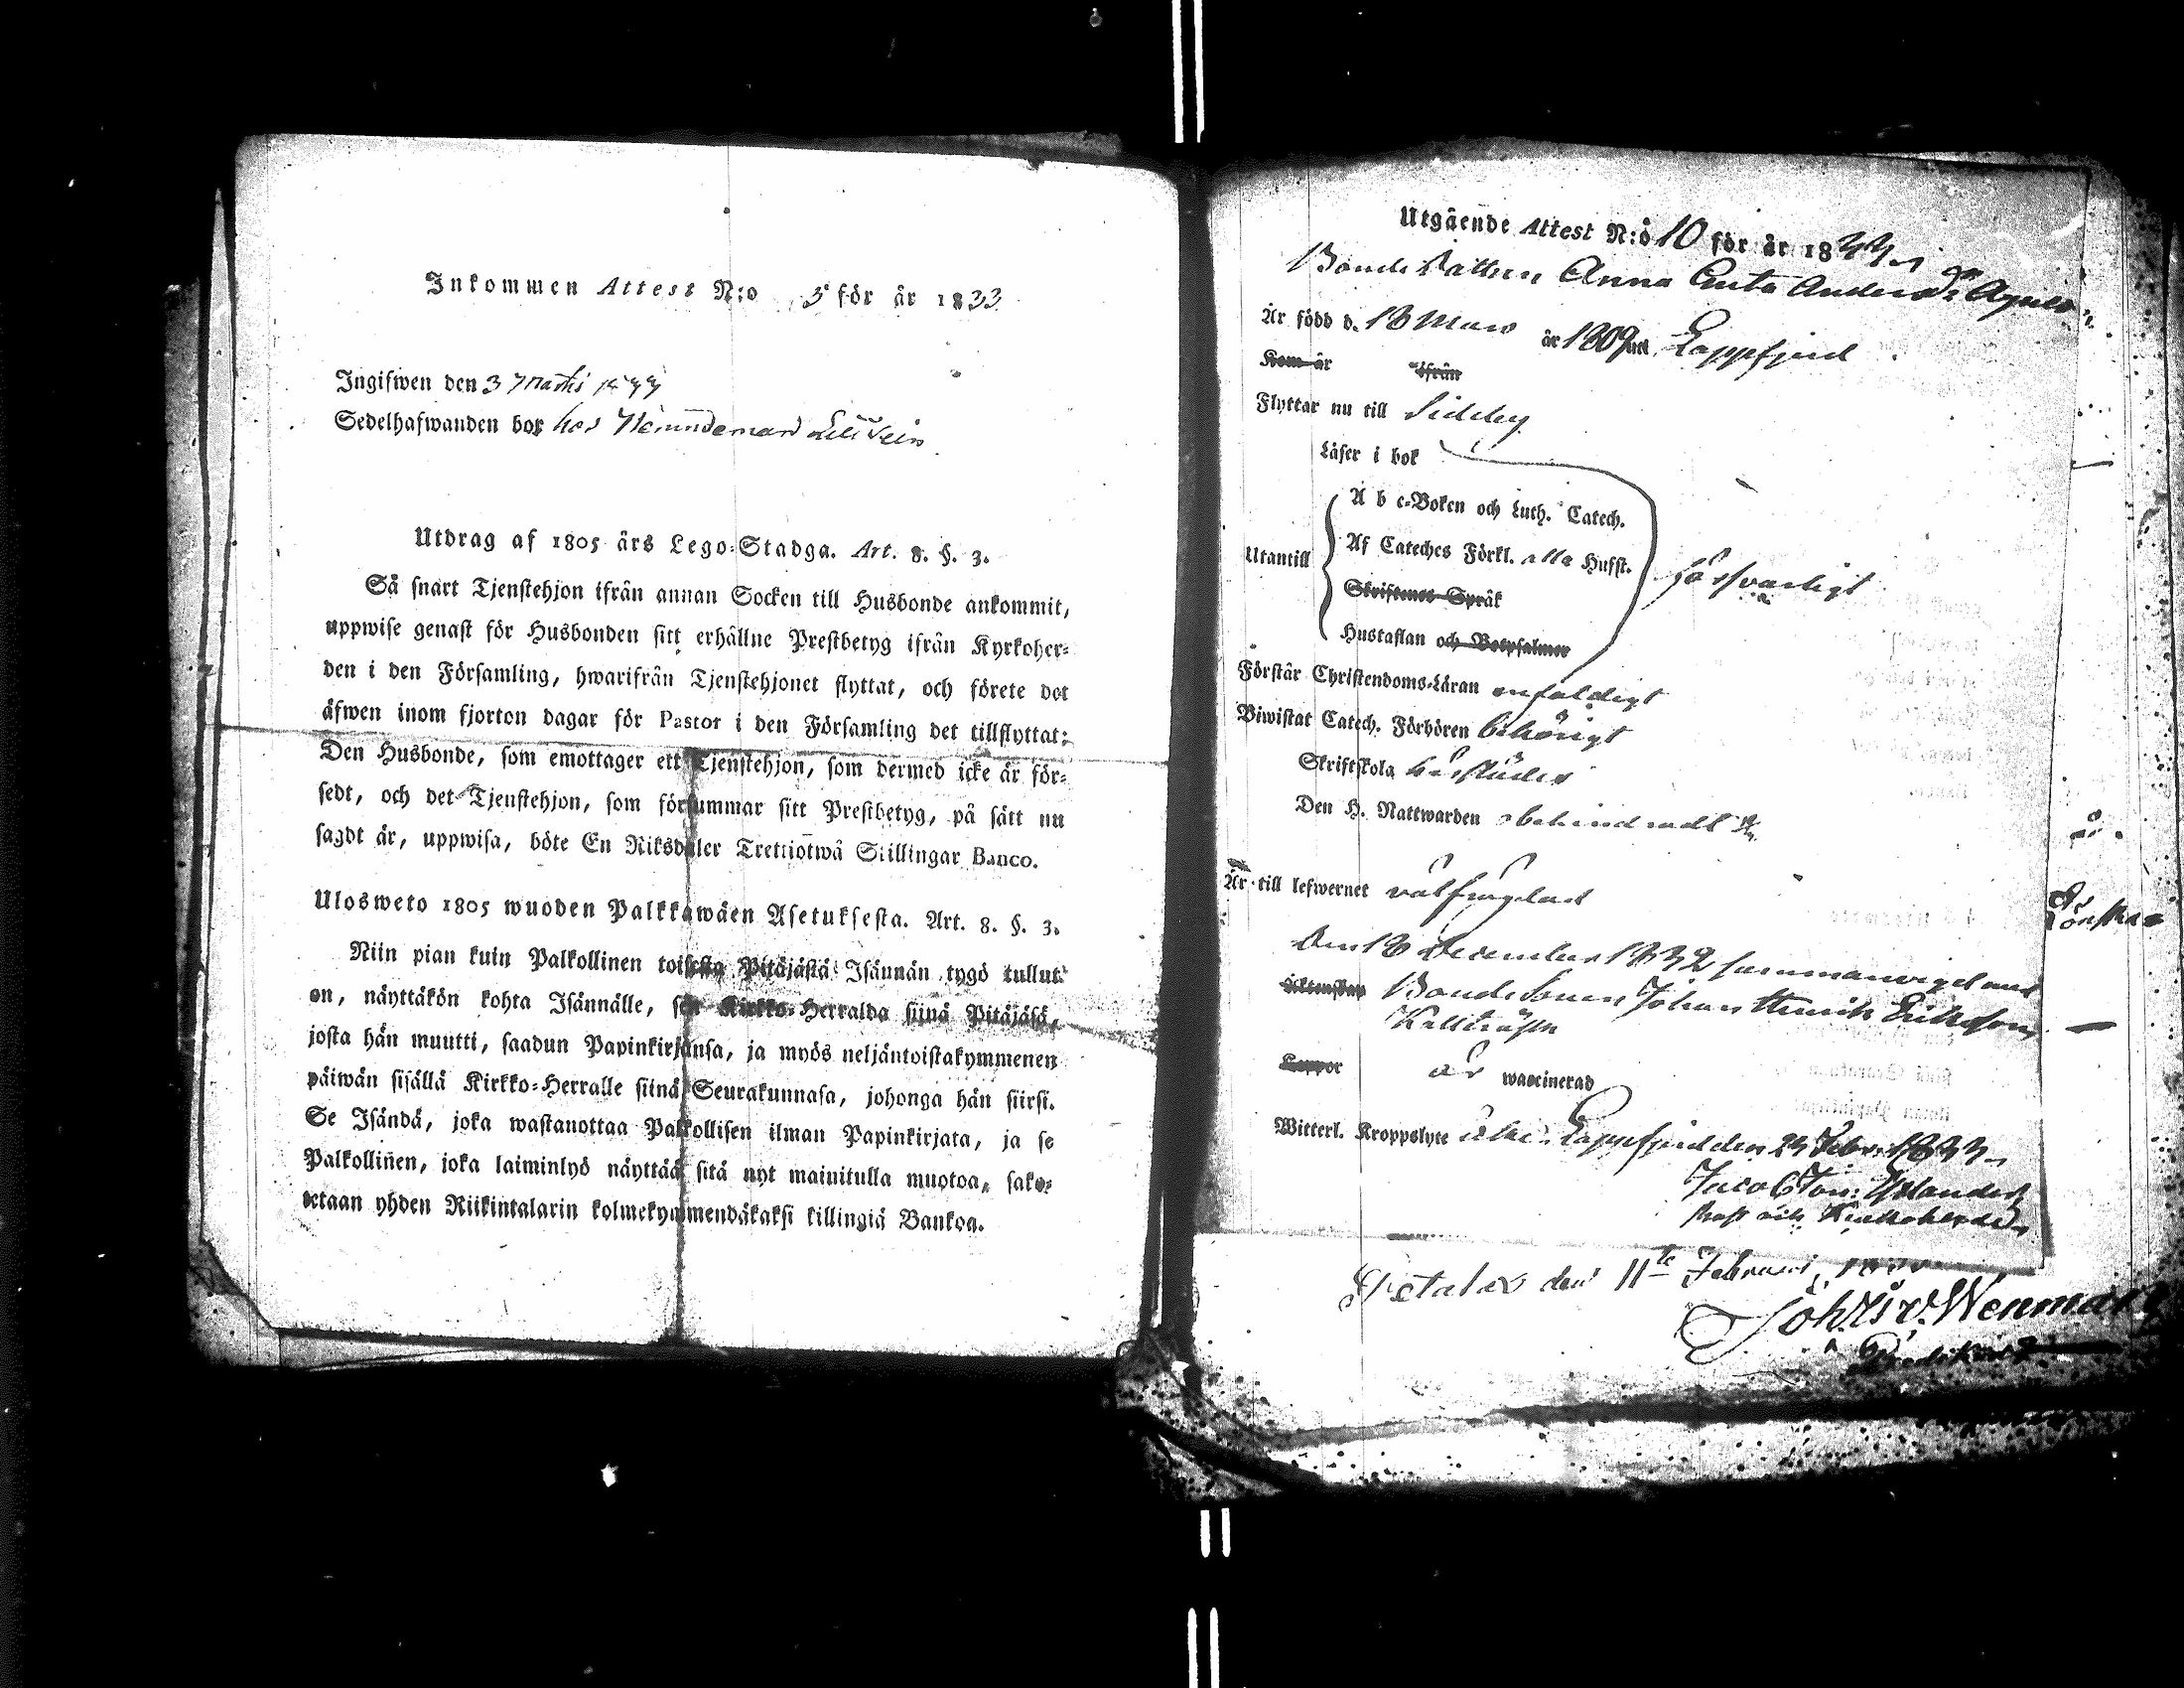 Inkommen Attest N:o 5 för år 1833
Ingifwen den 3 Martii 1833
Sedelhafwanden bor hos
Utdrag af 1805 års Lego-Stadga. Art. 8. §. 3.
Så snart Tjenstehjon ifrån annan Socken till Husbonde ankommit,
uppwise genast för Husbonden sitt erhållne Prestbetyg ifrån Kyrkoher-
den i den Församling, hwarifrån Tjenstehjonet flyttat, och förete det
äfwen inom fjorton dagar för Pastor i den Församling det tillflyttat;
Den Husbonde, som emottager ett Tjenstehjon, som dermed icke är för-
sedt, och det Tjenstehjon, som försummar sitt Prestbetyg, på sätt nu
sagdt är, uppwisa, böte En Riksdaler Trettiotwå Skillingar Banco.
Ulosweto 1805 wuoden Palkkawäen Asetuksesta. Art. 8. §. 3.
Niin pian kuin Palkollinen toisesta Pitäjästä Isännän tygö tullut
on, näyttäkön kohta Isännälle, sen Kirkko-Herralda siinä Pitäjäsä,
josta hän muutti, saadun Papinkirjansa, ja myös neljäntoistakymmenen
päiwän sisällä Kirkko-Herralle siinä Seurakunnasa, johonga hän siirsi.
Se Isändä, joka wastanottaa Palkollisen ilman Papinkirjata, ja se
Palkollinen, joka laiminlyö näyttää sitä nyt mainitulla muotoa, sako-
tetaan yhden Riikintalarin kolmekymmendäkaksi killingiä Bankoa.
Utgående Attest N:o 10 för år 1833
Bondedottern Anna Greta Andersdr
Är född d. 13 Mars år 1809 uti Lappfjerd
Kom år ifrån
Flyttar nu till Sideby
Läser i bok
A b c-Boken och Luth. Catech.
Utantill Af Cateches Förkl. alla Hufst. försvarligt
Skriftenes Språk
Hustaflan och Botpsalmer
Förstår Christendoms-Läran enfaldigt
Biwistat Catech. Förhören behörigt
Skriftskola
Den H. Nattwarden obehindradt
Är till lefwernet välfrejdad
Den 13 December 1832 sammanvigd med
Äktenskap Bondesonen Johan Henrik Eriksson
Kallträsk
Koppor är waccinerad
Witterl. Kroppslyte Lappfjerd den 23 Febr. 1833
Jacob Jon:
Prost och Kyrkoherde
Petalax den 11te Februari
Joh. Wenman